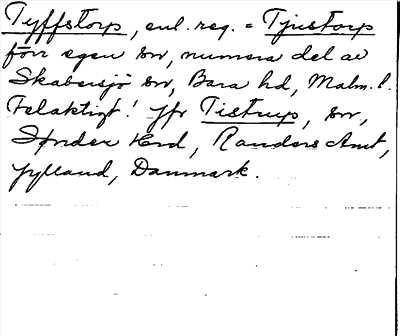 Tyffstorp, enl. reg. = Tjustorp
förr egen sn, numera del av
Skabersjö sn, Bara hd, Malm. l.
Felaktigt! Jfr Tistrup, sn,
Sønder Hrd, Randers Amt,
Jylland, Danmark.